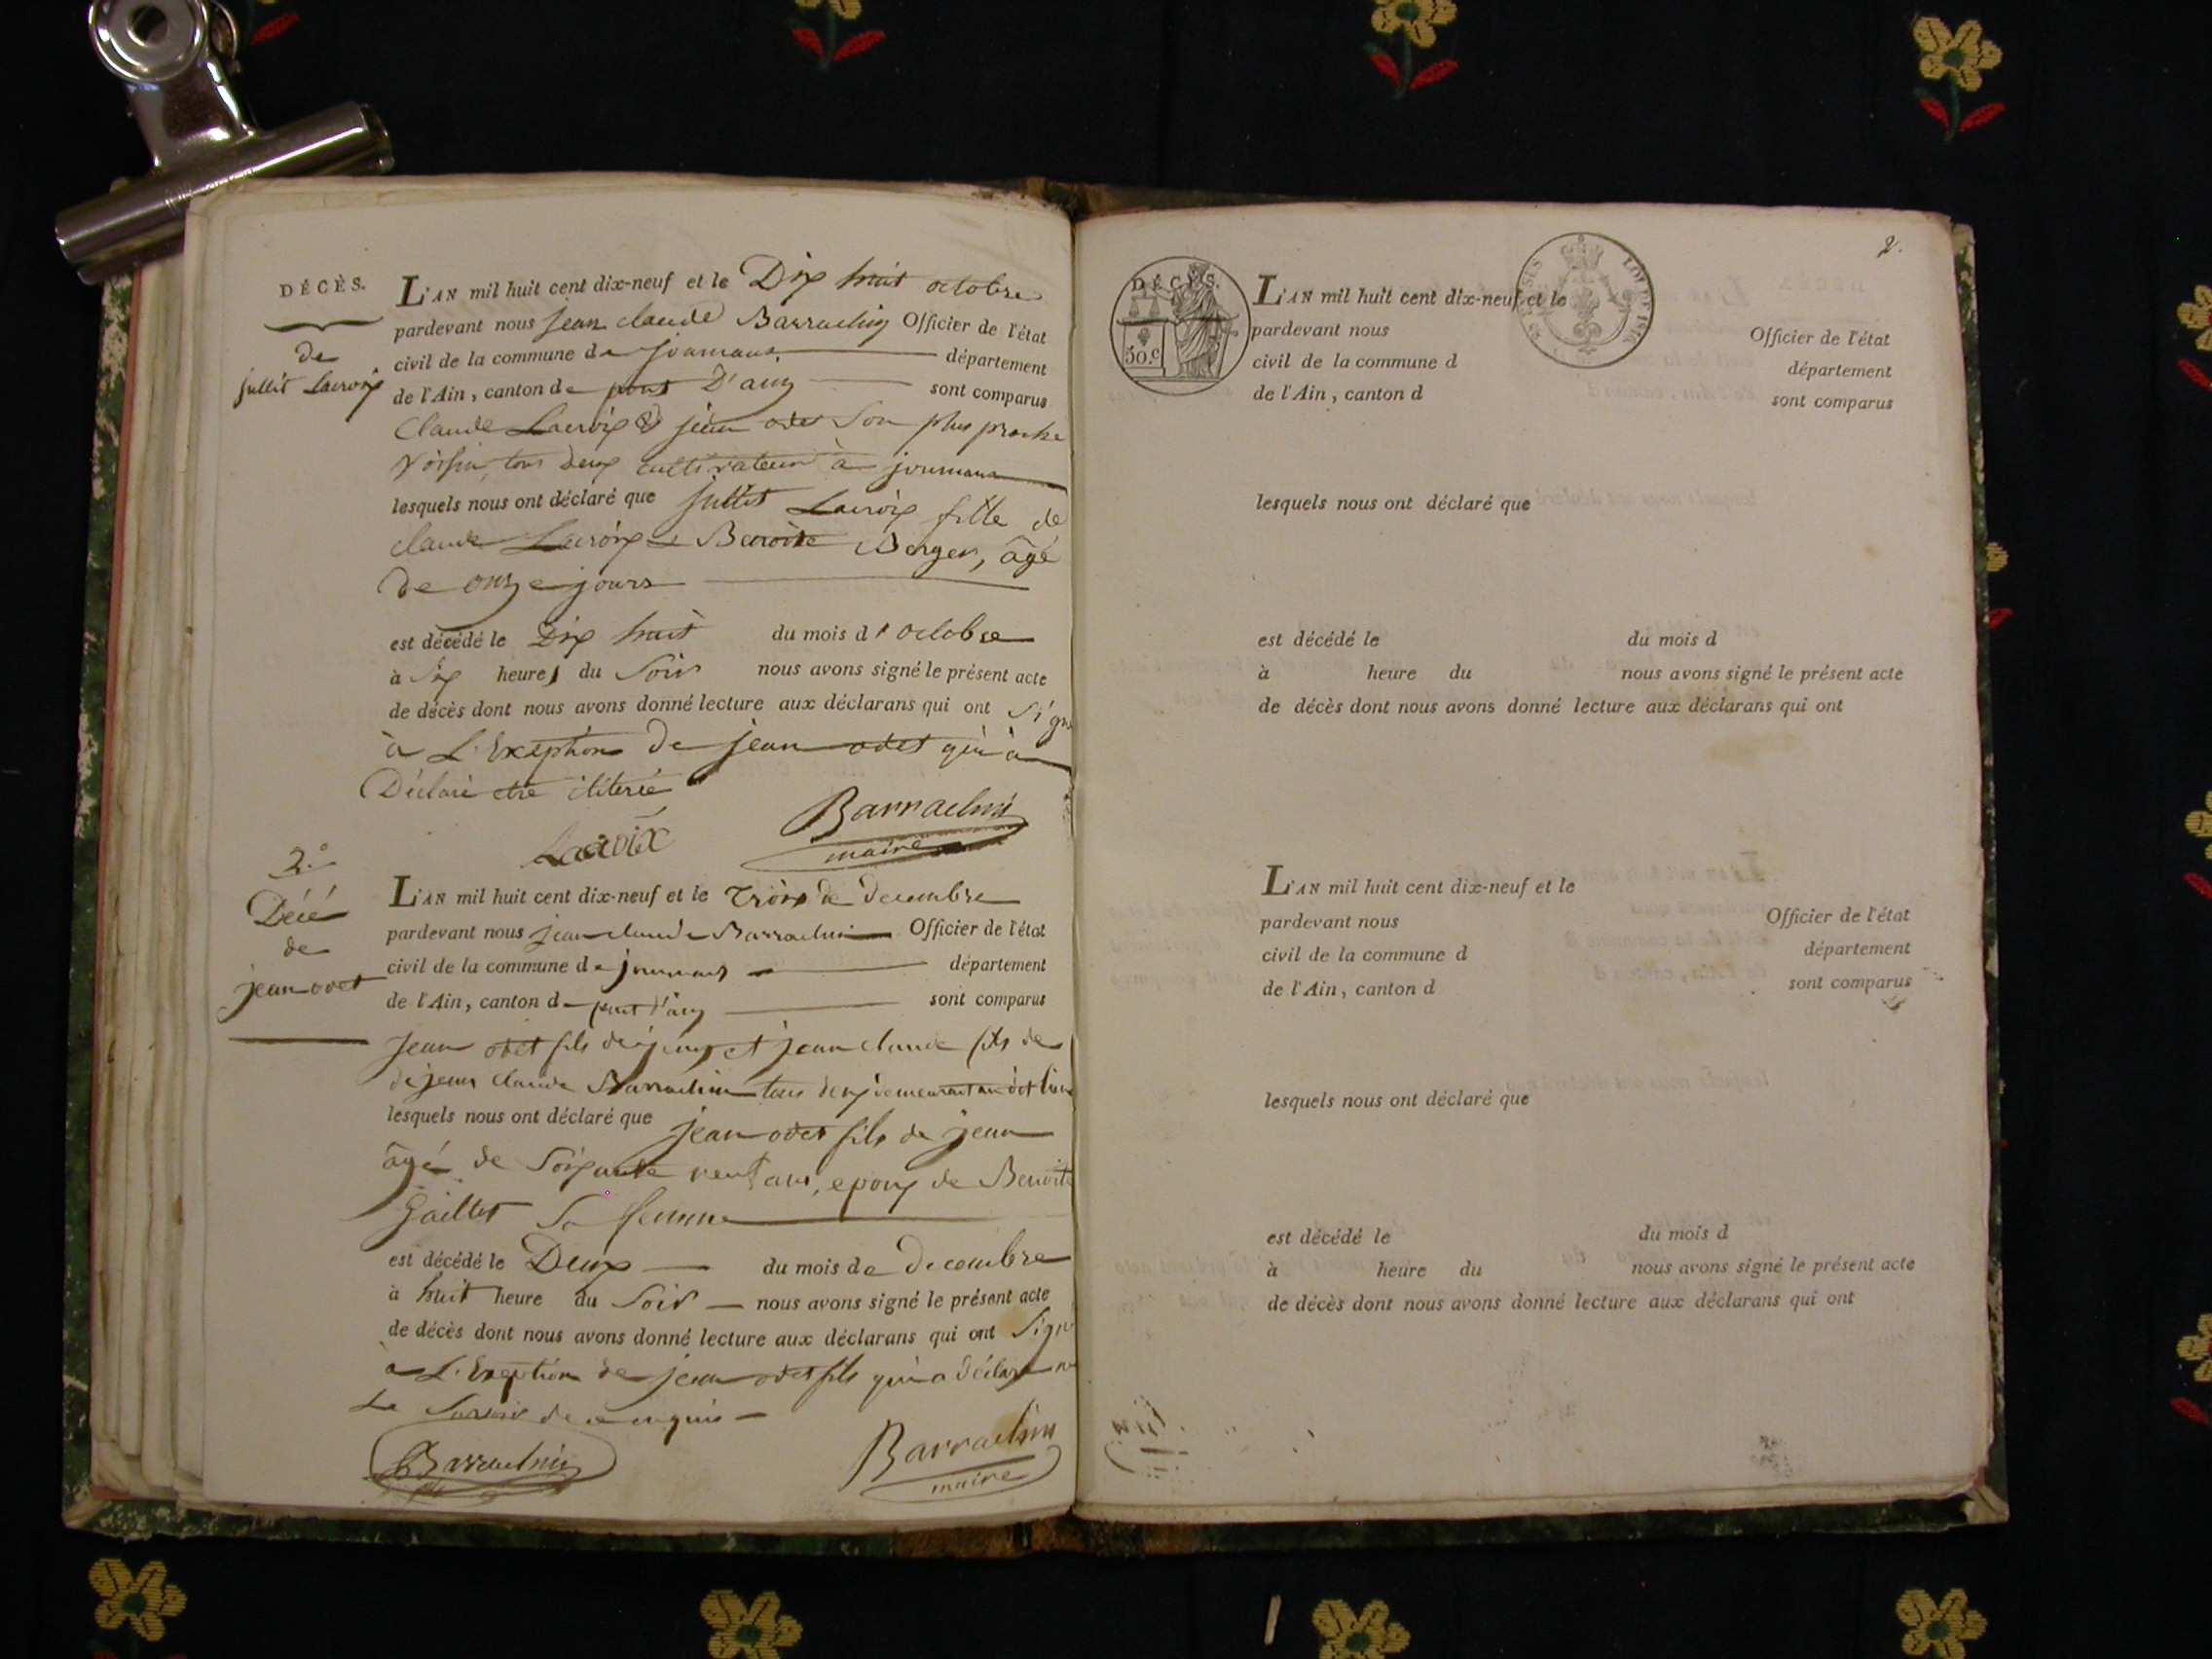 DÉCÈS.
de
jullit Lacroix
L'AN mil huit cent dix-neuf et le Dix huit octobre
pardevant nous jean claude Barrachin Officier de l'état
civil de la commune de joumans département
de l'Ain, canton de pont D'ain sont comparus
Claude Lacroix & jean odet Son plus proche
voisin, tous deux cultivateur à joumans
lesquels nous ont déclaré que jullit Lacroix fille de
claude Lacroix & Benoite Berger, âgé
de onze jours
est décédé le Dix huit du mois d'octobre
à Six heures du Soir nous avons signé le présent acte
de décès dont nous avons donné lecture aux déclarans qui ont Signé
à L'Exeption de jean odet qui à
Déclaré etre iliteré
Lacroix
Barrachin
maire
2.e
Décé
de
jean odet
L'AN mil huit cent dix-neuf et le Trois de decembre
pardevant nous jean claude Barrachin Officier de l'état
civil de la commune de joumans département
de l'Ain, canton de pont d'ain sont comparus
Jean odet fils de jean et jean claude fils de
de jean claude Barrachin tous deux demeurant au dit lieu
lesquels nous ont déclaré que jean odet fils de jean
âgé de Soixante neuf ans, epoux de Benoite
Gaillet Sa femme
est décédé le Deux du mois de Decembre
à huit heure du Soir nous avons signé le présent acte
de décès dont nous avons donné lecture aux déclarans qui ont Signé
à L'Exeption de jean odet fils qui a déclaré ne
Le Savoir de ce enquis
Barrachin
Barrachin
maire
2.
DÉCÈS.
50.c
LOI DE 1816
L'AN mil huit cent dix-neuf et le
pardevant nous Officier de l'état
civil de la commune d département
de l'Ain, canton d sont comparus
lesquels nous ont déclaré que
est décédé le du mois d
à heure du nous avons signé le présent acte
de décès dont nous avons donné lecture aux déclarans qui ont
L'AN mil huit cent dix-neuf et le
pardevant nous Officier de l'état
civil de la commune d département
de l'Ain, canton d sont comparus
lesquels nous ont déclaré que
est décédé le du mois d
à heure du nous avons signé le présent acte
de décès dont nous avons donné lecture aux déclarans qui ont